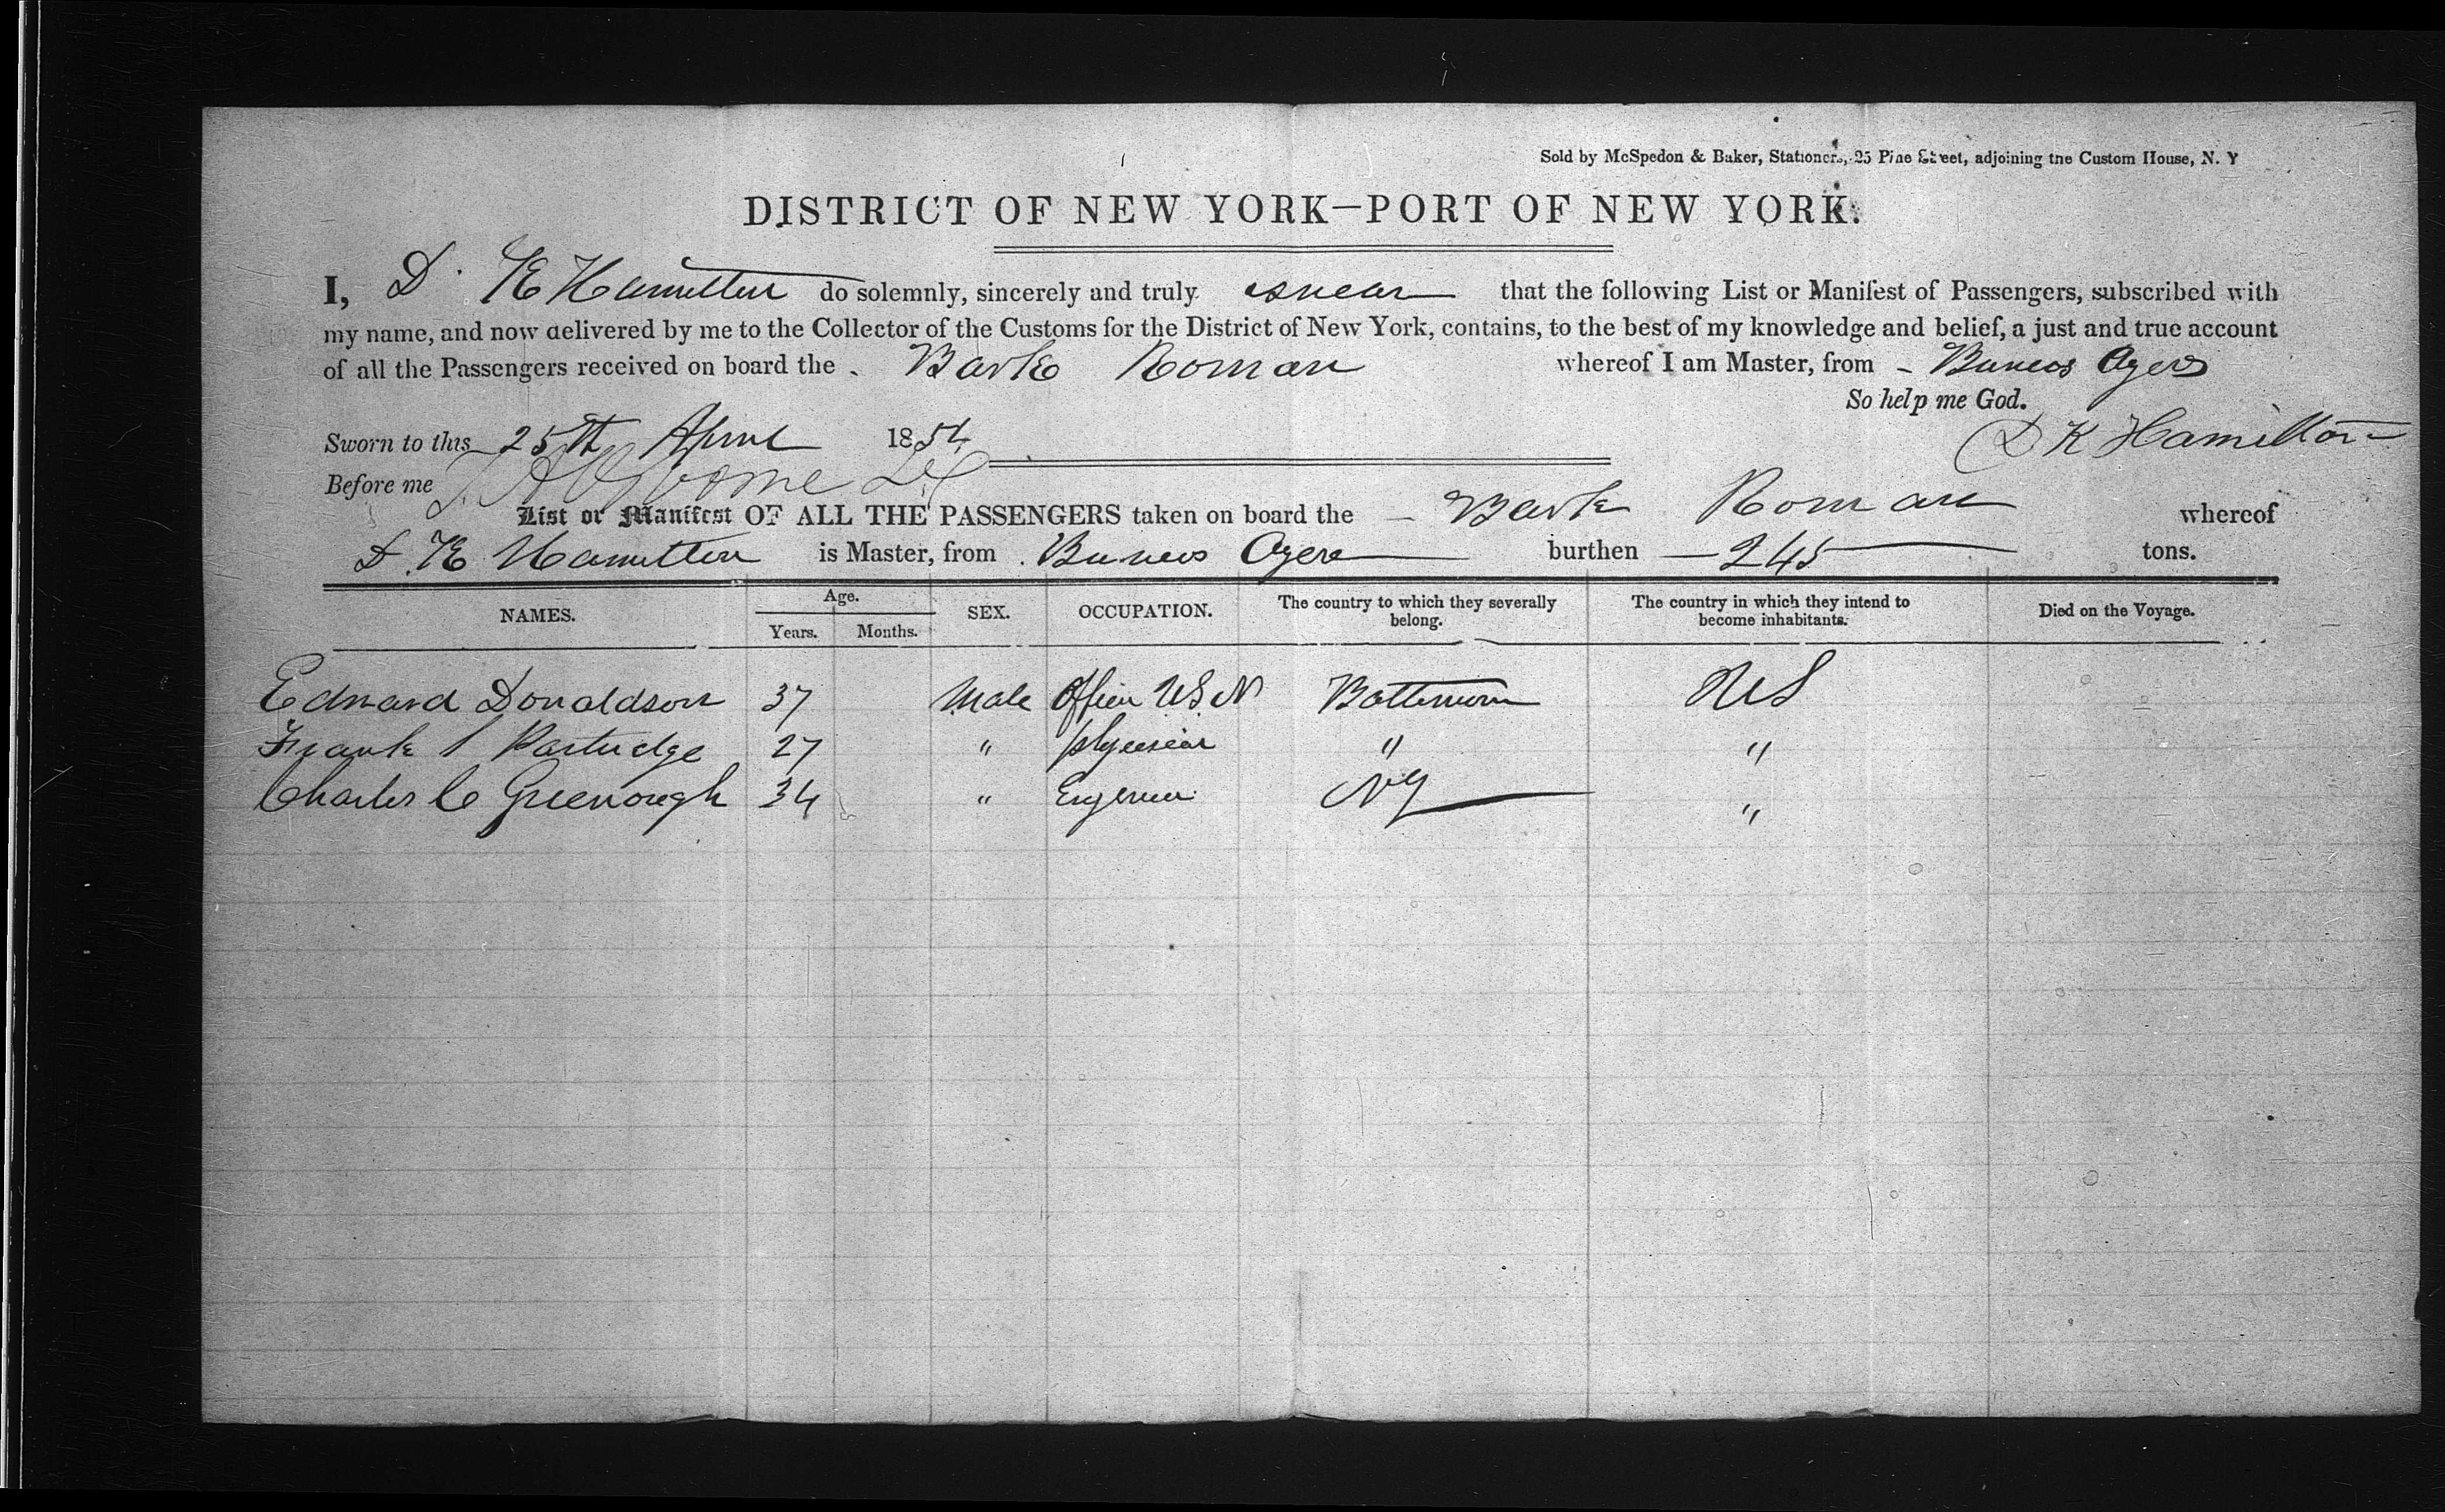 Sold by McSpedon & Baker, Stationers, 25 Pine Street, adjoining the Custom House, N. Y
DISTRICT OF NEW YORK—PORT OF NEW YORK.
I, D. K Hamilton do solemnly, sincerely and truly swear that the following List or Manifest of Passengers, subscribed with
my name, and now delivered by me to the Collector of the Customs for the District of New York, contains, to the best of my knowledge and belief, a just and true account
of all the Passengers received on board the Bark Roman whereof I am Master, from Buneos Ayers
So help me God.
Sworn to this 25th April 1854
D K Hamilton
Before me
List or Manifest OF ALL THE PASSENGERS taken on board the Bark Roman whereof
D. K Hamilton is Master, from Buneos Ayers burthen 245 tons.
NAMES. Age. Years. Months. SEX. OCCUPATION. The country to which they severally belong. The country in which they intend to become inhabitants. Died on the Voyage.
Edward Donaldson 37 Male Officer U S N Baltimore U S
Frank Partridge 27 " Physician " "
Charles C Greenough 34 " Engineer NY "